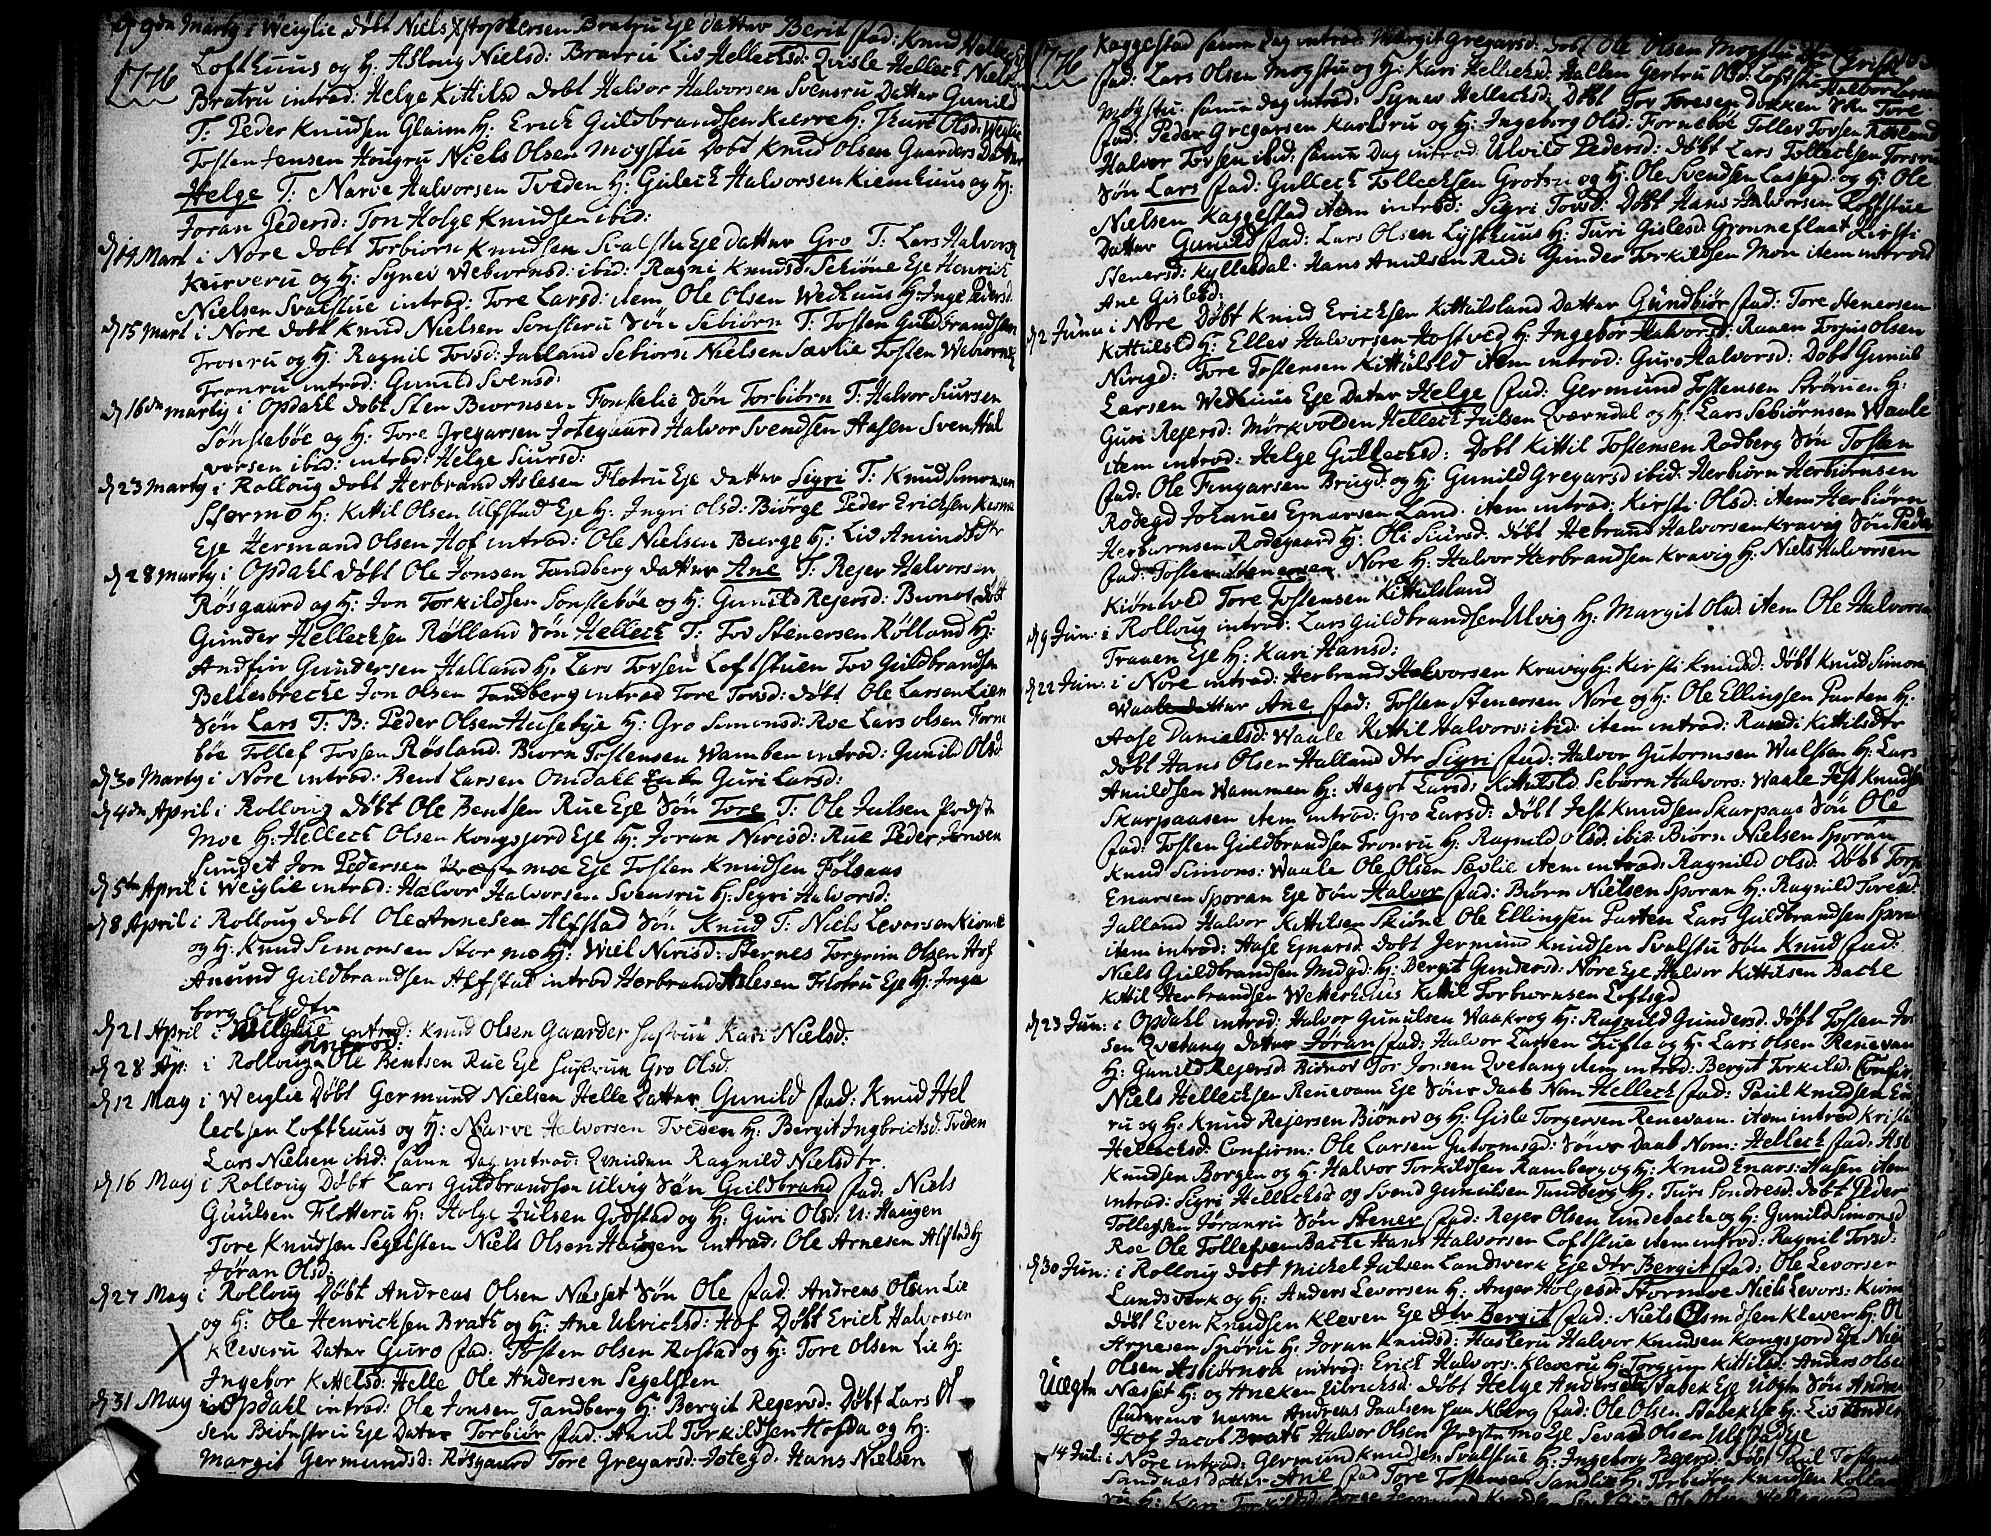 d 9de Marty i Weiglie døbt Niels Xstophersen Bratru Eje datter Berit fad: Knud Hellechs
1776
Lofthuus og H: Asloug Nielsd: Bratru Liv Hellechsd: Qvisle Hellech Niels
Bratru introd: Helge Kittilsd døbt Halvor Halvorsen Svensru Datter Gunild
T: Peder Knudsen Glaim H: Erich Guldbrandsen Kierre H: Thuri Olsd: Weglie
Tosten Jensen Hougru Niels Olsen Moystu Døbt Knud Olsen Gaarders Datter
Helge T: Narve Halvorsen Tveden H: Gulech Halvorsen Kiemhuus og H:
Joran Pedersd: Ton Holge Knudsen ibid:
d 14 Mart i Nore døbt Torbiørn Knudsen Svalstu Eje Datter Gro T: Lars Halvors
Kurveru og H: Synev Webiørnsd: ibid: Ragni Knudsd: Schiøne Eje Henrich
Nielsen Svalstue introd: Tore Larsd: item Ole Olsen Wedhuus H: Inge Pedersd
d 15 Mart i Nore døbt Knud Nielsen Sønsteru Søn Sebiørn T: Tosten Guldbrandsen
Tronru og H: Ragnil Tovsd: Jalland Sebiørn Nielsen Sævlie Tosten Webiørns
Tronru introd: Gunild Svensd:
d 16de Marty i Opdahl døbt Sten Biørnsen Fønstelie Søn Torbiørn T: Halvor Siursen
Sønstebøe og H: Tore Gregarsen Jotegaard Halvor Svendsen Aasen Sven Hal
vorsen ibid: introd: Helge Siursd:
d 23 Marty i Rolloug døbt Herbrand Aslesen Flotru Eje datter Sigri T: Knud Simonsen
Stormo H: Kittil Olsen Ulfstad Eje H: Ingri Olsd: Biørge Peder Erichsen
Eje Hermand Olsen Hof introd: Ole Nielsen Biørge H: Liv Amundsdtr
d 28 Marty i Opdahl døbt Ole Jonsen Tandberg datter Ane T: Rejer Halvorsen
Røsgaard og H: Jon Torkildsen Sønstebøe og H: Gunild Rejersd: døbt
Gunder Hellechsen Rølland Søn Hellech T: Tov Stenersen Rølland H:
Andfin Gundersen Halland H: Lars Tovsen Loftstuen Tov Guldbrandsen
Bellesbrecke Jon Olsen Tandberg introd Tore Tovsd: døbt Ole Larsen Lien
Søn Lars T: B: Peder Olsen Husebye H: Gro Simonsd: Roe Lars Olsen Forne
bøe Tollef Tovsen Røsland. Biørn Tostensen Wamben introd: Gunild Olsd:
d 30 Marty i Nore introd: Bent Larsen Omdahl Guri Larsd:
d 4de April i Rolloug døbt Ole Bentsen Rue Eje Søn Tore T: Ole Julsen Præst
Moe H: Hellech Olsen Kongsjord Eje H: Joran Nirisd: Rue Peder Jonsen
Sundet Jon Pedersen Præstmoe Eje Tosten Knudsen Følsaas
d 5te April i Weiglie introd: Halvor Halvorsen Svensru H: Segri Halvorsd:
d 8 April i Rolloug døbt Ole Arnesen Alfstad Søn Knud T: Niels Levorsen
og H: Knud Simonsen Stormo H: Weel Nirisd: Sternes Torgrim Olsen Hof
Anund Guldbrandsen Alfstad introd Herbrand Aslesen Flotru Eje H: Inge
borg Olsdtr
d 21 April i Weglie introd: Knud Olsen Gaarder Hustrue Kari Nielsd:
introd:
d 28 Ap: i Rolloug Ole Bentsen Rue Eje Hustrue Gro Olsd:
d 12 May i Weiglie Døbt Germund Nielsen Helle Datter Gunild fad: Knud Hel
lechsen Lofthuus og H: Narve Halvorsen Tveden H: Bergit Ingbrictsd: Tveden
Lars Nielsen ibid: samme Dag introd: Qvinden Ragnild Nielsdtr.
d 16 May i Rolloug Døbt Lars Guldbrandsen Ulvig Søn Guldbrand fad: Niels
Guulsen Flotteru H: Holge Julsen Godstad og H: Guri Olsd: N: Haugen
Tore Knudsen Segelsten Niels Olsen Haugen introd: Ole Arnesen Alfstad H
Jøran Olsd:
d 27 May i Rolloug Døbt Andreas Olsen Næsset Søn Ole fad. Andreas Olsen Lie
og H: Ole Henrichsen Brath og H: Ane Ulrichsd: Hof Døbt Erich Halvorsen
X Kleveru Datter Guro fad: Tosten Olsen Rostad og H: Tore Olsen Lie H:
Ingebor Kittelsd: Helle Ole Andersen Segelsten
d 31 May i Opdahl introd: Ole Jonsen Tandberg H: Bergit Rejersd: Døbt Lars Ol
sen Biønstru Eje Datter Torbiør fad: Amil Torkildsen Hofda og H:
Margit Germundsd: Røsgaard Tore Gregarsd: Jotegd. Hans Nielsen
1776
Kaggestad samme Dag introd: Margit Gregarsd: Døbt Ole Olsen Moystu
fad: Lars Olsen Moystu og H: Kari Hellechsd: Hallen Gertru Olsd: Loftstu
Moystu. samme Dag introd: Synev Hellechsd: Døbt Tov Toresen Dokken Søn Tore
fad: Peder Gregarsen Karlsru og H: Ingeborg Olsd: Fornebøe Tollev Tovsen Røsland
Halvor Tovsen ibid: samme Dag introd: Ulvild Pedersd: Døbt Lars Tollechsen Torsru
Søn Lars fad: Gullech Tollechsen Grotru og H: Ole Svendsen Lassegd: og H: Ole
Nielsen Kaggestad item introd: Sigri Tovsd: Døbt Hans Halvorsen Loftstue
Datter Gunild fad: Lars Olsen Lysthuus H: Turi Gislesd: Grønneflaat Kirsti
Stenersd: Kyllesdal. Hans Amulsen Rudi Gunder Torkildsen Mon item introd
Ane Gislesd:
d 2 Juni i Nore Døbt Knud Erichsen Kittulsland Datter Gundbiør fad: Tore Stenersen
Kittulsld H: Ellev Halvorsen Hostved H: Ingebor Halvorsd: Raaen Torjus Olsen
Nirigd: Tore Tostensen Kittulsld item introd: Guro Halvorsd: Døbt Gunul
Larsen Wedhuus Eje Datter Helge fad: Germund Tostensen Strømen H:
Guri Rejersd: Mørkvolden Hellech Julsen Qværndal og H: Lars Sebiørnsen Waale
item introd: Helge Gullechsd: Døbt Kittil Tostensen Rodberg Søn Tosten
fad: Ole Fingarsen Brugd: og H: Gunild Gregarsd ibid: Herbiørn Herbiørnsen
Rodegd Johannes Ejnarsen Land. item introd: Kirsti Olsd: item Herbiørn
Herbiørnsen Rodegaard H: Oli Siursd: døbt Hebrand Halvorsen Kravig Søn Peder
fad: Tosten Stenersen Nore H: Halvor Herbrandsen Kravig H: Niels Halvorsen
Kiøntved Tore Tostensen Kittilsland
d 9 Jun: i Rolloug introd: Lars Guldbrandsen Ulvig H: Margit Olsd. item Ole Halvorsen
Traaen Eje H: Kari Hansd:
d 22 Jun: i Nore introd: Herbrand Halvorsen Kravig H: Kirsti Knudsd: døbt Knud Simons
Waale datter Ane fad: Tosten Stenersen Nore og H: Ole Ellingsen Parten H:
Aase Danielsd: Waale Kittil Halvors: ibid: item introd: Randi Kittilsdtr
døbt Hans Olsen Halland dtr Sigri fad: Halvor Gutormsen Wulsten H: Lars
Amildsen Wammen H: Aagot Larsd: Kittulsld Sebiørn Halvors: Waale Jest Knudsen
Skarpaasen item introd: Gro Larsd: Døbt Jest Knudsen Skarpaas Søn Ole
fad: Tosten Guldbrandsen Tronru H: Ragnild Olsd. ibid: Biørn Nielsen Sporan
Knud Simons: Waale Ole Olsen Sævlie item introd: Ragnild Olsd: Døbt Torju
Enarsen Sporan Eje Søn Halvor fad: Biørn Nielsen Sporan H: Ragnild Toresd.
Jalland Halvor Kittilsen Skiøne Ole Ellingsen Parten Lars Guldbrandsen Sporan
item introd: Aase Ejnarsd: døbt Jermund Knudsen Svalstu Søn Knud fad:
Niels Guldbrandsen Midgd: H: Bergit Gundersd: Nore Eje Halvor Kittilsen Backe
Kittil Herbrandsen Wetterhuus Kittil Torbiørnsen Loftsgd
d 23 Jun: i Opdahl introd: Halvor Gunulsen Raakrog H: Ragnild Gundersd: døbt Tosten Jo
sen Qvetang datter Jøran fad: Halvor Larsen Tufte og H: Lars Olsen Renevam
H: Gunild Rejersd: Bidnor Tor Jonsen Qvetang item introd: Bergit Torkild: Confir
Niels Hellechsen Renevam Eje Søns daab Nom Hellech fad: Paul Knudsen
ru og H: Knud Rejersen Biønes og H: Gisle Torgersen Renevam. item introd Kristi
Hellechsd: Confirm: Ole Larsen Gutormsgd: Søns Daab Nom: Hellech fad: Asl
Knudsen Borgen og H: Halvor Torkildsen Ramberg og H: Knud Enars: Aasen item
introd: Sigri Hellechsd og Svend Gunulsen Tandberg H: Turi Sondresd: døbt Peder
Tollefsen Jøranru Søn Stener fad: Rejer Olsen Lindebacke og H: Gunild Simonsd
Roe Ole Tollefsen Backe Hans Halvorsen Loftstue item introd: Ragnil Tovsd:
d 30 Jun: i Rolloug døbt Michel Julsen Landsverk Eje dtr Bergit fad: Ole Levorsen
Landsverk og H: Anders Levorsen H: Anger Holgesd: Stormoe Niels Levors:
døbt Even Knudsen Kleven Eje dtr Bergit fad: Niels Olsen Klever H: Ol
Arnesen Spøru H: Joran Knudsd: Hasleru Halvor Knudsen Kongsjord Eje Niels
Olsen Asbiørnøa introd: Erich Halvors: Kleveru H: Torgun Kittilsd: Anders Olsen
Uægte Næsset H: og Aneken Ulrichsd: døbt Helge Andersen Stabek Eje Uægte Søn Andreas
Faderens Navn Andreas Paulsen paa Kberg fad: Ole Olsen Stabek Eje H: Liv Ander
Hof Jacob Brath Halvor Olsen Præstmo Eje Sevald Olsen Ulfstad Eje
14 Jul: i Nore introd: Germund Knudsen Svalstue H: Ingeborg Rejersd: Døbt Paul Tostensen
Sandnæs datter Ane fad Tore Tostensen Sandlie H: Torbiørn Knudsen